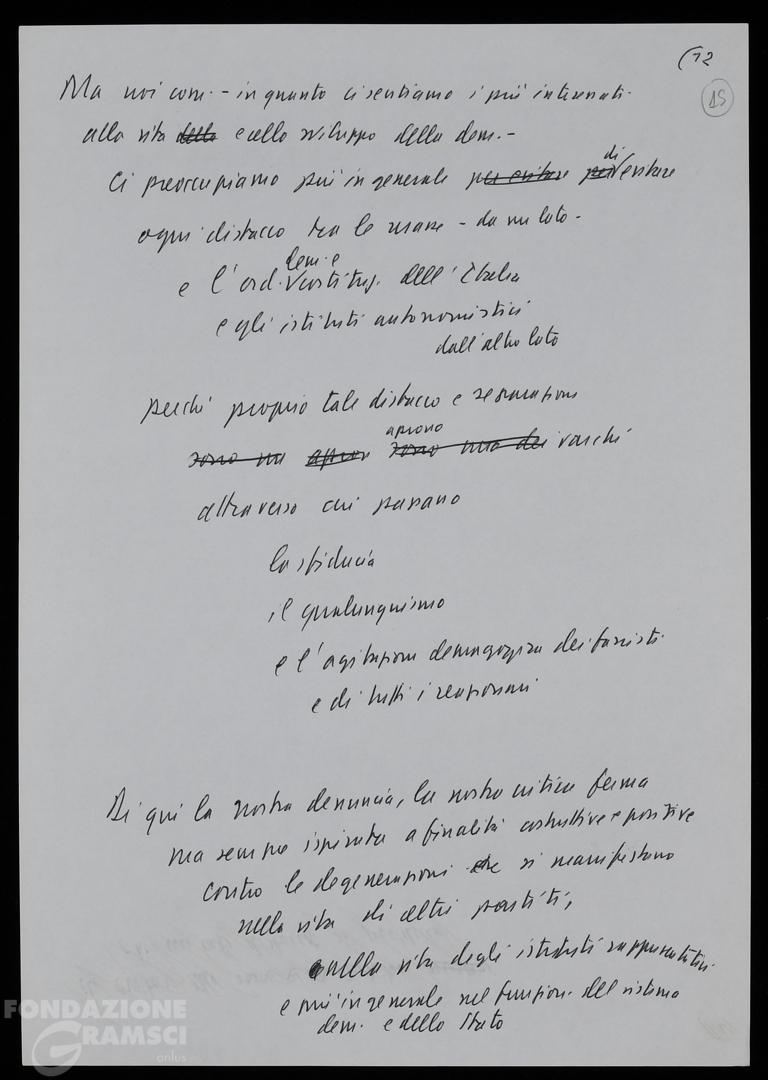 (12
15
Ma noi com. – in quanto ci sentiamo i più interessati
alla vita della e allo sviluppo della dem. –
Ci preoccupiamo più in generale per evitare per di evitare
ogni distacco tra le masse – da un lato –
e l'ord. dem. e costituz. dell'Italia
e gli istituti autonomistici
dall'altro lato
perché proprio tale distacco e separazione
sono un aprono aprono sono uno dei varchi
attraverso cui passano
la sfiducia
il qualunquismo
e l'agitazione demagogica dei fascisti
e di tutti i reazionari
Di qui la nostra denuncia, la nostra critica ferma
ma sempre ispirata a finalità costruttive e positive
contro le degenerazioni che si manifestano
nella vita di altri partiti,
nella vita degli istituti rappresentativi
e più in generale nel funzion. del sistema
dem. e dello Stato
FONDAZIONE
GRAMSCI
onlus